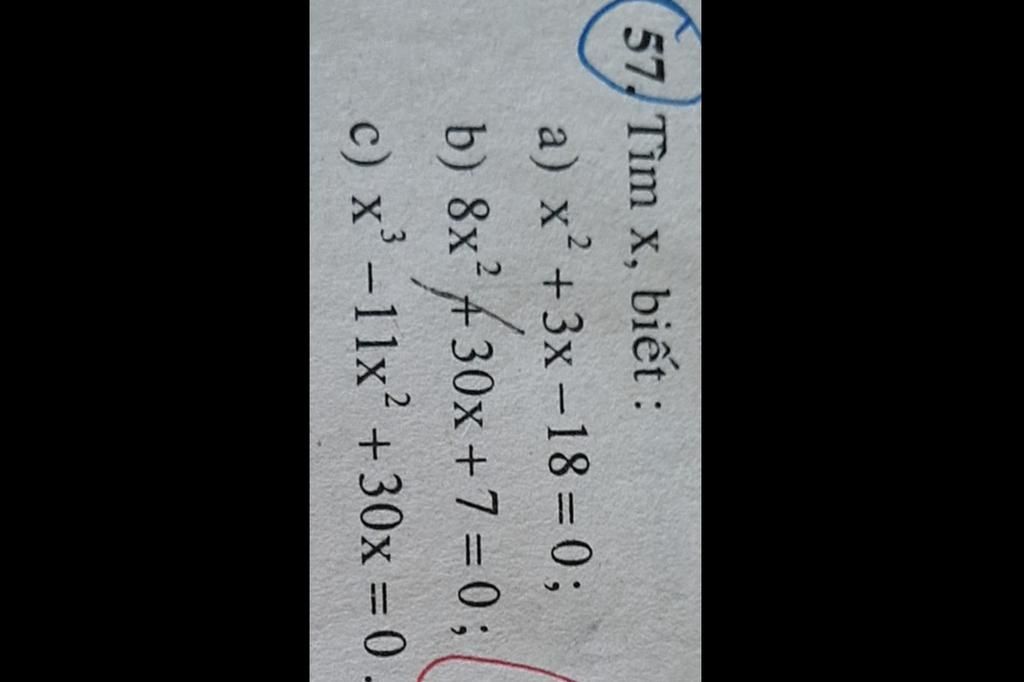 57. Tìm x, biết :
a) x² + 3x – 18 = 0 ;
b) 8x² + 30x + 7 = 0 ;
c) x³ – 11x² + 30x = 0 .